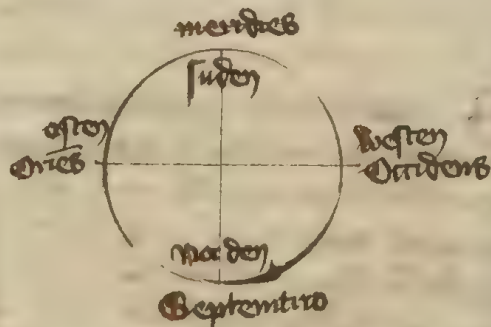 meridies
suden
osten
Ories
Westen
Occidens
norden
Septemtrio